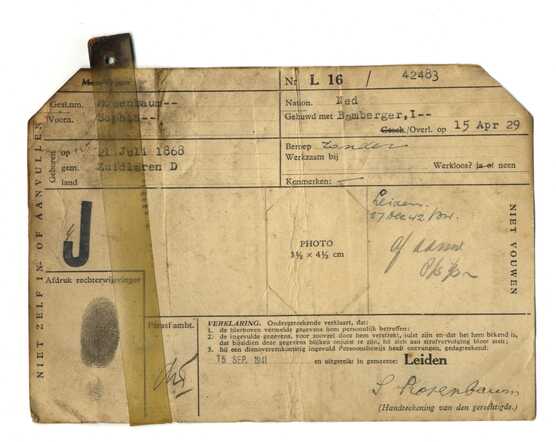 Nr. L 16 / 42483
Gesl.nm. Rosenbaum--
Voorn. Sophia--
Nation. Ned
Gehuwd met Bamberger, I--
Gesch./Overl. op 15 Apr 29
Geboren op 21 Juli 1868
gem. Zuidlaren D
land
Beroep zonder
Werkzaam bij
Werkloos? is of neen
Kenmerken: —
NIET ZELF IN- OF AANVULLEN
NIET VOUWEN
J
PHOTO
3½ x 4½ cm
Leiden
Afdruk rechterwijsvinger
Paraaf ambt.
VERKLARING. Ondergeteekende verklaart, dat:
1. de hierboven vermelde gegevens hem persoonlijk betreffen;
2. de ingevulde gegevens, voor zooveel door hem verstrekt, juist zijn en dat het hem bekend is,
dat bijaldien deze gegevens blijken onjuist te zijn, hij zich aan strafvervolging bloot stelt;
3. hij een dienovereenkomstig ingevuld Persoonsbewijs heeft ontvangen, gedagteekend:
15 SEP. 1941 en uitgereikt in gemeente: Leiden
S. Rosenbaum
(Handteekening van den gerechtigde.)